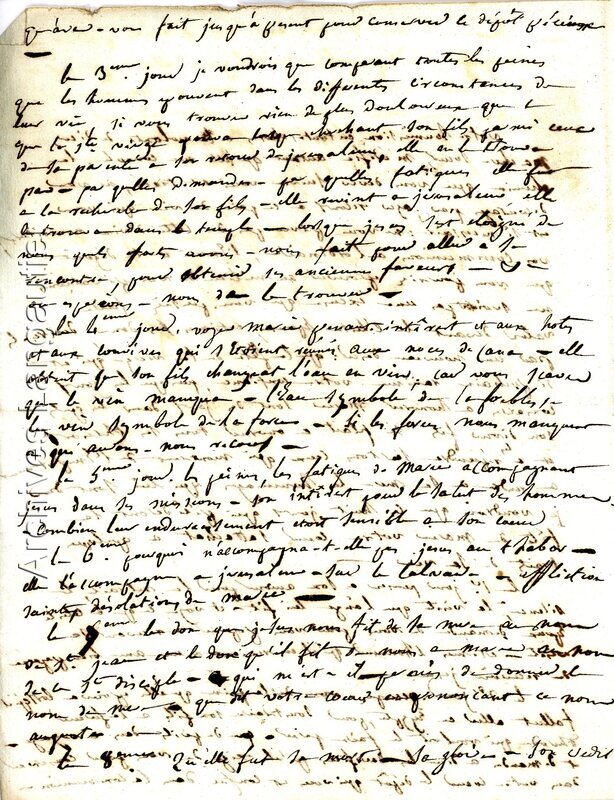 qu'ave-vous fait jusqu'a present pour conserver le depôt précieux
le 3eme jour je voudrois que comparant toutes les peines
que les hommes eprouvent dans les differentes circonstances de
leur vie, si vous trouvez rien de plus douloureux que ce
que la ste vierge cherchant son fils parmi ceux
de sa parenté a son retour de jerusalem, elle ne l trouva
pas - par quelles demandes - par quelles fatigues elle fut
a la recherche de son fils - elle revint a jerusalem elle
le trouva dans le temple - lorsque jesus s'est eloigné de
nous quels efforts avons-nous fait pour aller a sa
rencontre, pour obtenir ses anciennes faveurs -
ou esperons-nous de le trouver -
Le 4eme jour, voyez Marie prenant intêret et aux hotes
et aux convives qui s'etoient reunis aux noces de Cana - elle
obtient que son fils changeat l'eau en vin, car vous scavez
que le vin manqua - l'Eau symbole de la foiblesse
le vin symbole de la force - si les forces nous manquent
a qui avons-nous recours -
Le 5eme jour. les peines, les fatigues de Marie accompagnant
jesus dans ses missions - son intêret pour le salut des hommes
Combien leur endurcissement etoit sensible a son coeur
le 6eme pourquoi n'accompagna-t-elle pas jesus au thabor -
elle l'accompagne a jerusalem - sur le Calvaire - affliction
saintes désolations de marie -
le 7eme le don que jesus nous fit de sa mere au nom
de st jean et le don qu'il fit de nous a marie au nom
de ce st disciple - qui de donner le
nom de mere - que dit votre coeur en prononcant ce nom
auguste -
Le qu'elle fut sa mort - sa gloire - son
Archives